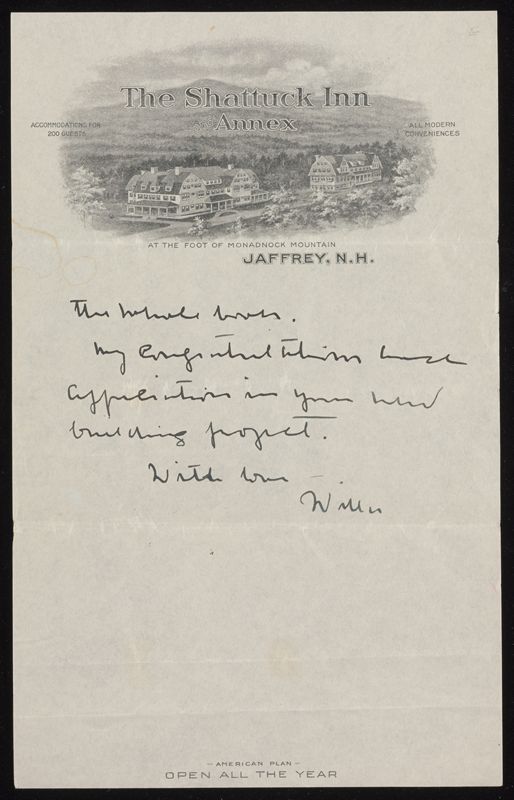 The Shattuck Inn
and Annex
ACCOMMODATIONS FOR
200 GUESTS
ALL MODERN
CONVENIENCES
AT THE FOOT OF MONADNOCK MOUNTAIN
JAFFREY, N.H.
the whole book.
My Congratulations and
appreciation in your new
building project.
With love —
Willa
— AMERICAN PLAN —
OPEN ALL THE YEAR